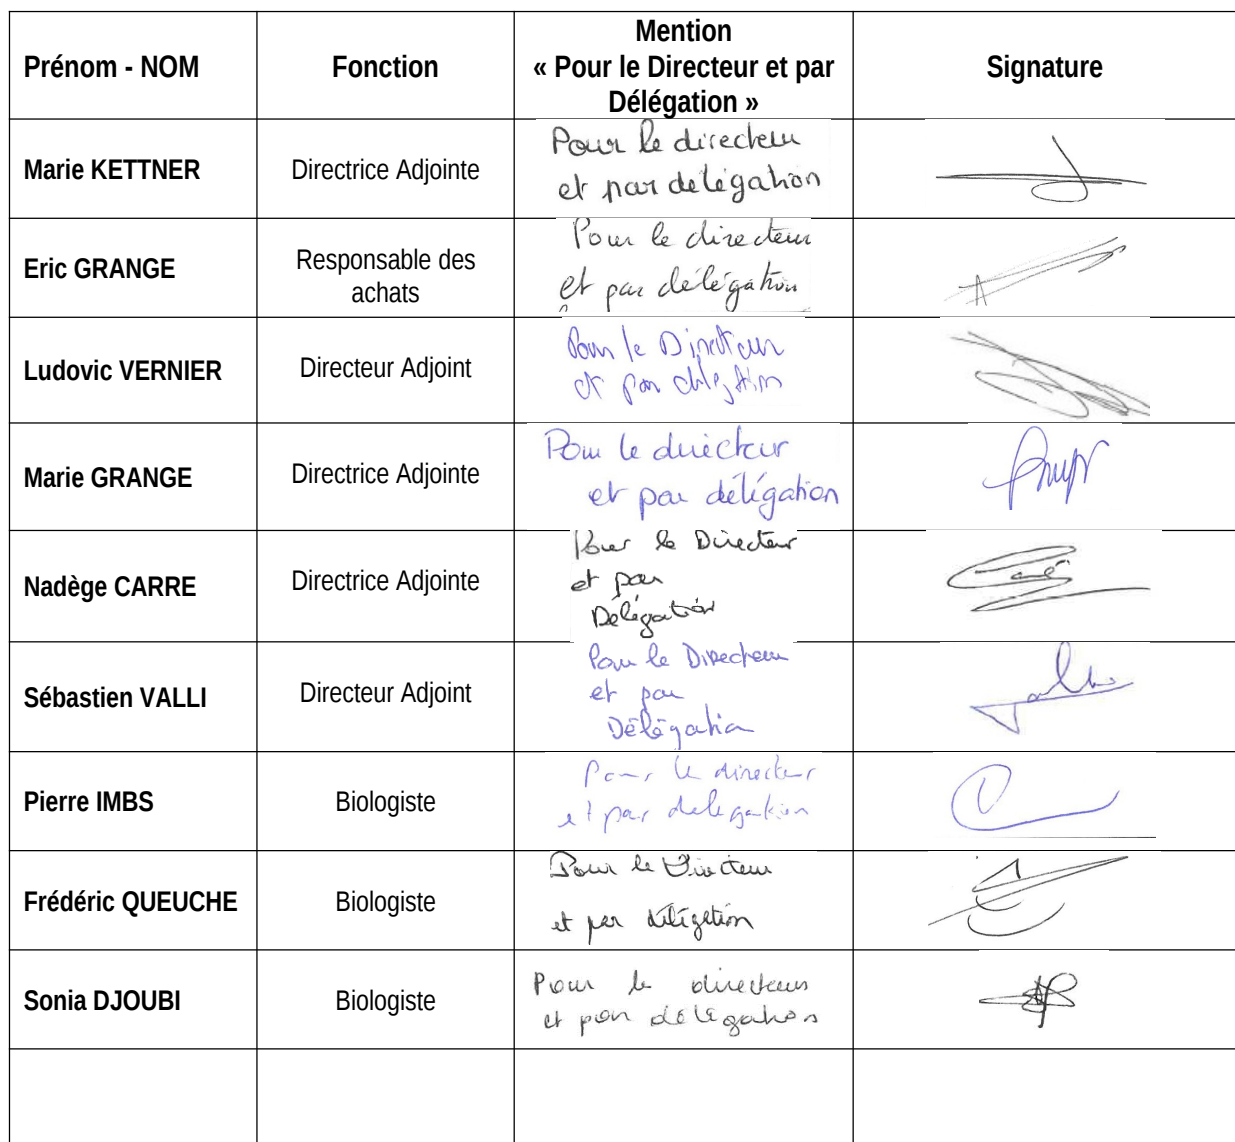 Prénom - NOM
Fonction
Mention
« Pour le Directeur et par
Délégation »
Signature
Marie KETTNER
Directrice Adjointe
Pour le directeur
et par délégation
Eric GRANGE
Responsable des
achats
Pour le directeur
et par délégation
Ludovic VERNIER
Directeur Adjoint
Pour le Directeur
et par délégation
Marie GRANGE
Directrice Adjointe
Pour le directeur
et par délégation
Nadège CARRE
Directrice Adjointe
Pour le Directeur
et par
Délégation
Sébastien VALLI
Directeur Adjoint
Pour le Directeur
et par
Délégation
Pierre IMBS
Biologiste
Pour le directeur
et par delegation
Frédéric QUEUCHE
Biologiste
Pour le Directeur
et par délégation
Sonia DJOUBI
Biologiste
Pour le directeur
et par délégation